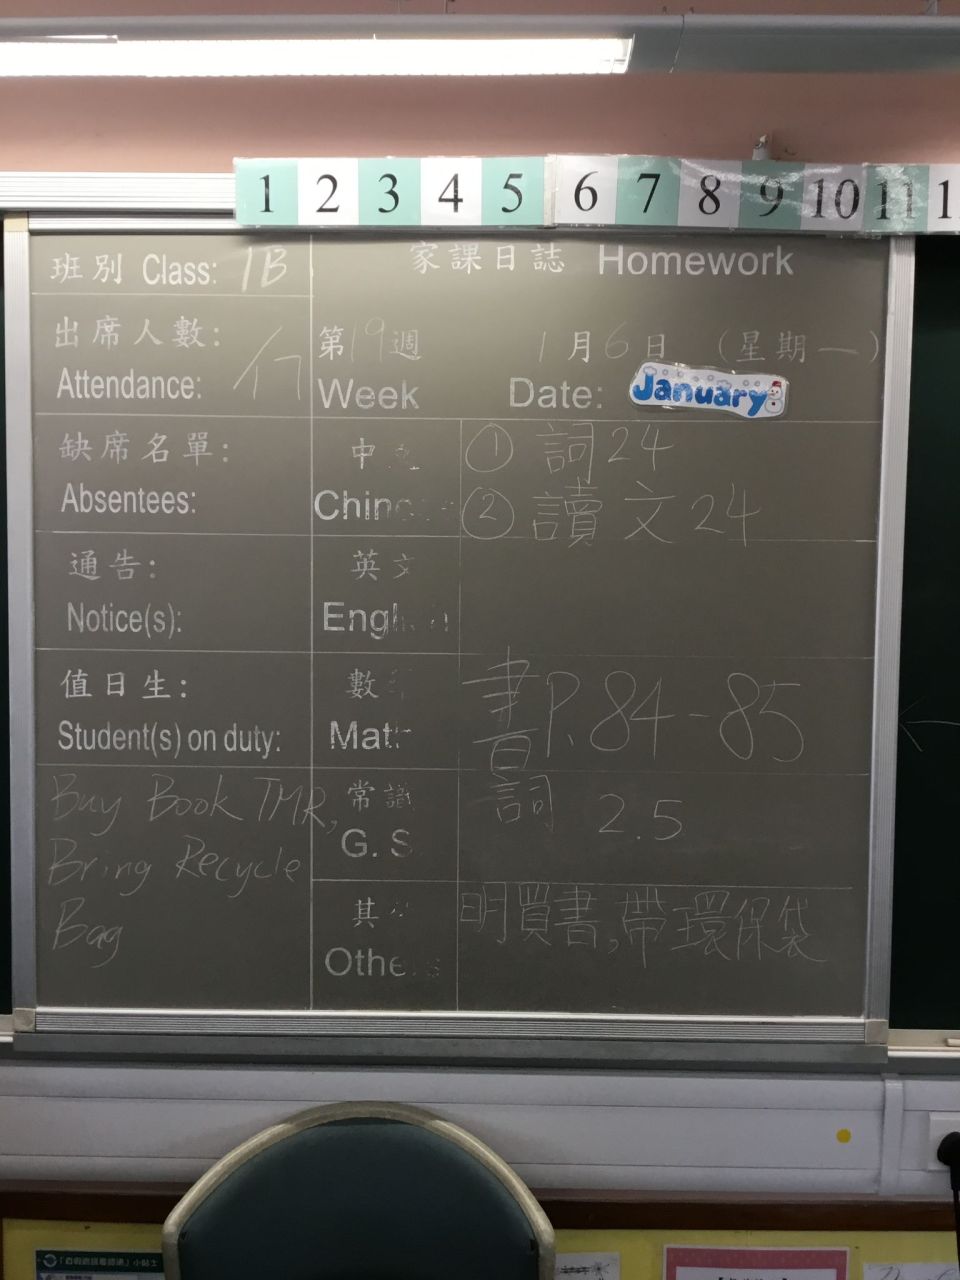 1 2 3 4 5 6 7 8 9 10 11
班別 Class: 1B
家課日誌 Homework
出席人數:
Attendance:
第19週 1月6日 (星期一)
Week Date: January
缺席名單:
Absentees:
中
Chin
① 詞24
② 讀文24
通告:
Notice(s):
英文
English
值日生:
Student(s) on duty:
數
Math
書P.84-85
Buy Book TMR,
Bring Recycle
Bag
常識
G. S.
詞 2.5
其
Others
明買書,帶環保袋